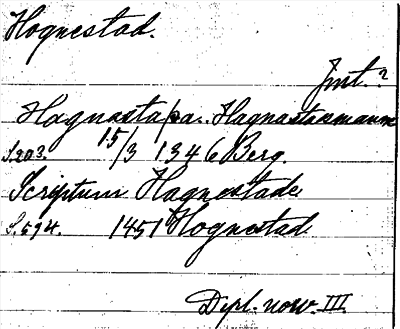 Hognestad.
Jmt.?
Hagnastaþa. Hagnastaamann
S. 203. 15/3 1346 Berg.
Scriptum Hagnestade
S. 594. 1451 Hognestad
Dipl. norv. III